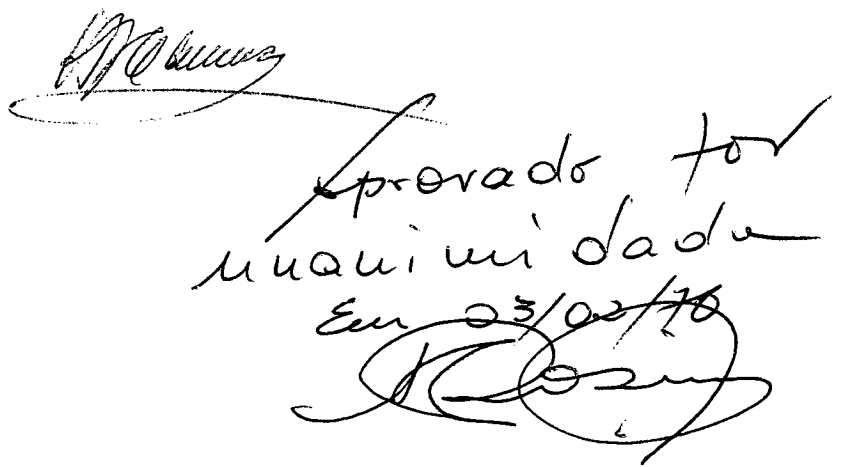 Aprovado por
unanimidade
Em 03/02/70